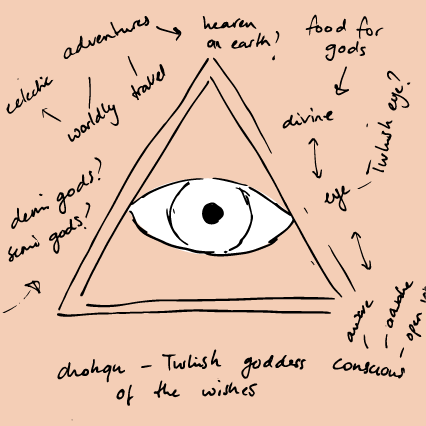 adventures
heaven
on earth?
food for
gods
eclectic
worldly
travel
divine
Turkish eye?
eye
demi gods?
semi gods?
aware
awake
open
conscious
Turkish goddess
of the wishes